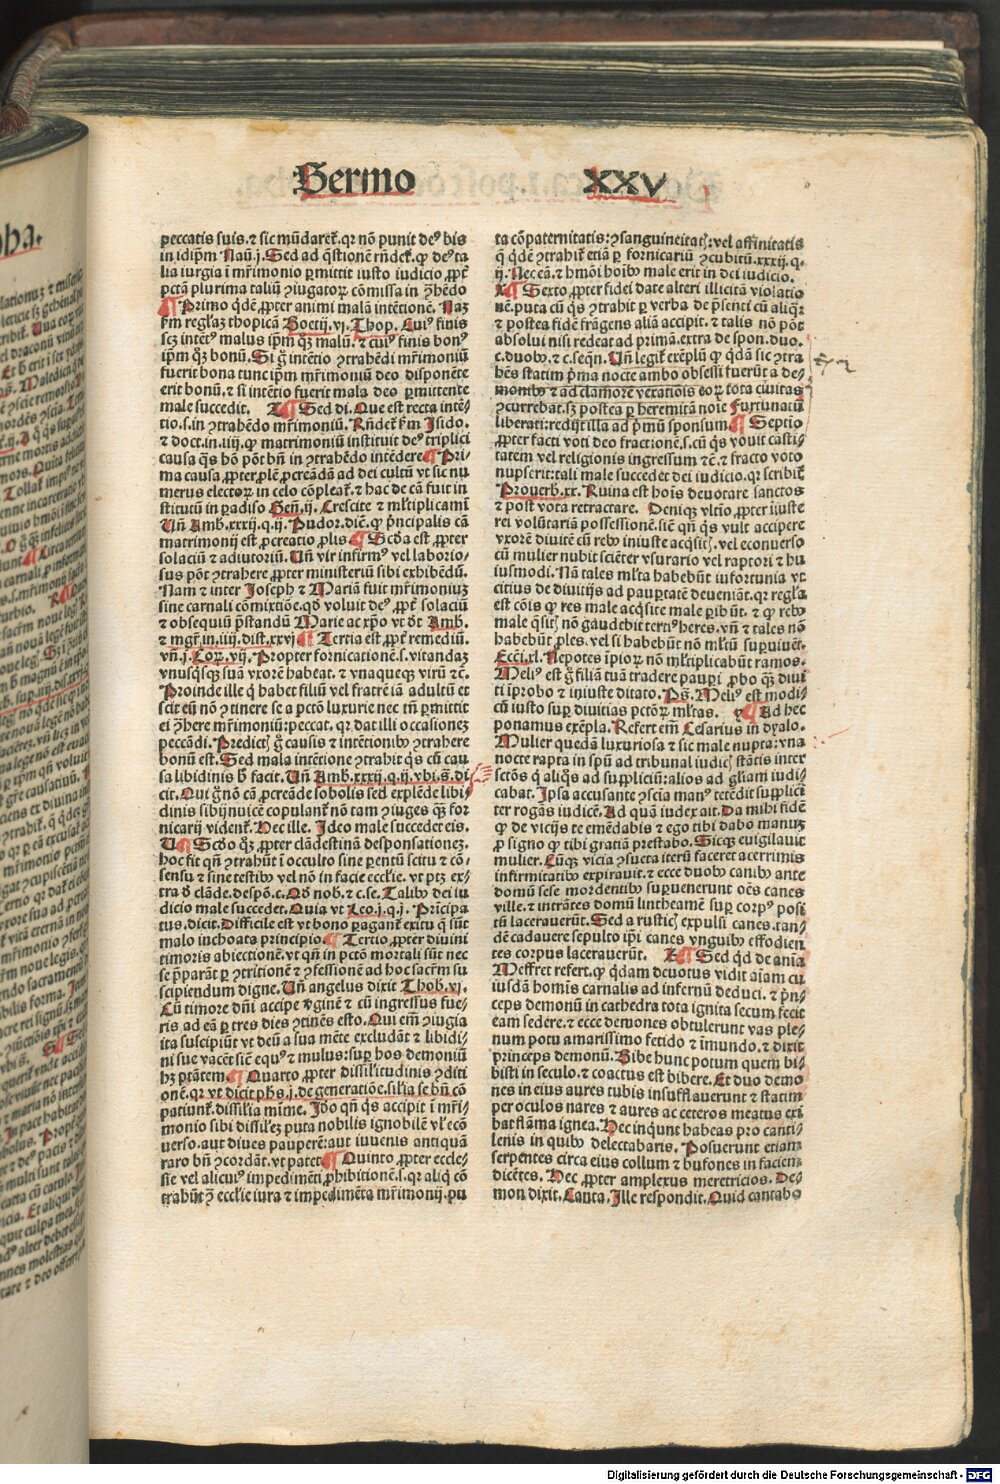 Sermo XXV
peccatis suis. ⁊ sic mūdareť. qr nō punit deꝰ bis
in idip̄m Nau͞. j. Sed ad q̄stionē rn̄deť. ꝙ de⁹ ta
lia iurgia ī mr̄imonio ꝑmittit iusto iudicio ꝓpt̄
pctā̄ plurima taliū ꝯiugatoꝝ cōmissa in ꝯh̄edo
¶ Primo qd̄e ꝓpter animi malā intētionē. Naꝫ
fm regl̄aꝫ thopicā Boetij. vj. Thop. Cuiꝰ finis
scꝫ intētꝰ malus ip̄m qꝫ malū. ⁊ cuiꝰ finis bonꝰ
ip̄m qꝫ bonū. Si ḡ intētio ꝯtrahēdi mr̄imoniū
fuerit bona tunc ip̄m mr̄imoniū deo disponēte
erit bonū. ⁊ si intētio fuerit mala deo ꝑmittente
male succedit. T ¶ Sed di. Que est recta intē
tio. s. in ꝯtrahēdo mr̄imoniū. Rn̄deť fm Jsido.
⁊ doct. in. iiij. ꝙ matrimoniū instituit deꝰ triplici
causa q̄s hō pōt bn̄ in ꝯtrahēdo intēdere ¶ Pri-
ma causa ꝓpter ꝓlē ꝓcreādā ad dei cultū vt sic nu
merus electoꝝ in celo cōpleať. ⁊ hac de cā fuit in
stitutū in ꝑadiso Gen̄. ij. Crescite ⁊ ml̄tiplicamī
Vn̄ Amb. xxxij. q. ij. Pudor. dic̄. ꝙ pn̄cipalis cā
matrimonij est ꝓcreatio ꝓlis ¶ Scd̄a est ꝓpter
solaciū ⁊ adiutoriū. Vn̄ vir infirmꝰ vel laborio-
sus pōt ꝯtrahere ꝓpter ministeriū sibi exhibēdū.
Nam ⁊ inter Joseph ⁊ Mariā fuit mr̄imoniuꝫ
sine carnali cōmixtiōe. qd̄ voluit deꝰ ꝓpt̄ solaciū
⁊ obsequiū pn̄standū Marie ac xp̄o vt dt̄ Amb.
⁊ mgr̄. in. iiij. dist. xxvj ¶ Tertia est ꝓpt̄ remediū.
vn̄. j. Coꝝ. vij. Propter fornicationē. s. vitandaꝫ
vnusqꝫsqꝫ suā vxorē habeat. ⁊ vnaqueqꝫ virū ⁊c̄.
Proinde ille q̄ habet filiū vel fratrē iā adultū et
scit eū nō ꝯtinere se a pctō luxurie nec tn̄ ꝑmittit
ei ꝯh̄ere mr̄imoniū: peccat. qr dat illi occasioneꝫ
peccādi. Predict̄ ḡ causis ⁊ intētionibꝰ ꝯtrahere
bonū est. Sed mala intētione ꝯtrahit q̄s cū cau
sa libidinis h̄ facit. Vn̄ Amb. xxxij. q. ij. vbi. s̄. di
cit. Qui ḡ nō cā ꝓcreāde sobolis sed explēde libi
dinis sibijnuicē copulanť nō tam ꝯiuges qꝫ for
nicarij videnť. Hec ille. Jdeo male succedet eis.
V ¶ Scd̄o qꝫ ꝓpter clādestinā desponsationeꝫ.
hoc fit qn̄ ꝯtrahūt ī occulto sine parentū scitu ⁊ cō-
sensu ⁊ sine testibꝰ vel nō in facie ecclīe. vt ptꝫ ex-
tra d̄ clāde. despō. c. Qd̄ nob. ⁊ c. se. Talibꝰ dei iu
dicio male succedet. Quia vt Leo. j. q. j. Pr̄incipa
tus. dicit. Difficile est vt bono ꝑaganť exitu q̄ sūt
malo inchoata principio ¶ Tertio ꝓpter diuini
timoris abiectionē. vt qn̄ in pctō mortali sūt nec
se p̄parāt ꝑ ꝯtritionē ⁊ ꝯfessionē ad hoc sacr̄m su
scipiendum digne. Vn̄ angelus dixit Thob. vj.
Cū timore dn̄i accipe v̄ginē ⁊ cū ingressus fue-
ris ad eā ꝑ tres dies ꝯtinēs esto. Qui em̄ ꝯiugia
ita suscipiūt vt deū a sua mēte excludāt ⁊ libidi-
ni sue vacēt sicē equꝰ ⁊ mulus: suꝑ hos demoniū
hꝫ ptātem. ¶ Quarto ꝓpter dissilitudinis ꝯditi
onē. qr vt dicit ph̄s. j. de generatiōe. silia se bn̄ cō
patiunť. dissilia mīme. Jd̄o qn̄ q̄s accipit ī mr̄i-
monio sibi dissilēꝫ puta nobilis ignobilē vl̄ ecō
uerso. aut diues pauperē: aut iuuenis antiquā
raro bn̄ ꝯcordāt. vt patet ¶ Quinto ꝓpter eccle-
sie vel alicuiꝰ impedimēti ꝓhibitionē. s. qr aliq̄ cō
trahūt ꝯ ecclīe iura ⁊ impedimēta mr̄imonij. pu
ta cōpaternitatis: ꝯsanguineitať: vel affinitatis
q̄ qd̄e ꝯtrahiť etiā ꝑ fornicariū ꝯcubitū. xxxij. q.
ij. Nec eā. ⁊ hmōi hoībꝰ male erit in dei iudicio.
X ¶ Sexto ꝓpter fidei date alteri illicitā violatio
nē. puta cū q̄s ꝯtrahit ꝑ verba de pn̄senti cū aliq̄:
⁊ postea fidē frāgens aliā accipit. ⁊ talis nō pōt
absolui nisi redeat ad primā. extra de spon. duo.
c. duobꝰ. ⁊ c. seqn̄. Vn̄ legiť exēplū ꝙ qdā sic ꝯtra
hēs statim pr̄ma nocte ambo obsessi fuerūt a de-
monibꝰ ⁊ ad clamorē vexatiōis eoꝝ tota ciuitas
ꝯcurrebat. sꝫ postea ꝑ heremitā noīe Furtunatū
liberati: redijt illa ad pr̄mū sponsum ¶ Septīo
ꝓpter facti voti deo fractionē. s. cū q̄s vouit casti-
tatem vel religionis ingressum ⁊c̄. ⁊ fracto voto
nupserit: tali male succedet dei iudicio. qr scribiť
Prouerb. xx. Ruina est hoīs deuotare sanctos
⁊ post vota retractare. Deniqꝫ vltīo ꝓpter iniuste
rei volūtariā possessionē. sicē qn̄ q̄s vult accipere
vxorē diuitē cū rebꝰ iniuste acq̄siť. vel econuerso
cū mulier nubit sciēter vsurario vel raptori ⁊ hu
iusmodi. Nā tales ml̄ta habebūt īfortunia vt
citius de diuitijs ad pauꝑtatē deueniāt. qr regl̄a
est cōis ꝙ res male acq̄site male ꝑibūt. ⁊ ꝙ rebꝰ
male q̄siť nō gaudebit tertiꝰ heres. vn̄ ⁊ tales nō
habebūt ꝓles. vel si habebūt nō ml̄tū suꝑuiuēt.
Ecc̄i. xl. Nepotes īpioꝝ nō ml̄tiplicabūt ramos.
Meliꝰ est ḡ filiā tuā tradere pauꝑi ꝓbo qꝫ diui
ti īprobo ⁊ iniuste ditato. Ps̄. Meliꝰ est modi-
cū iusto suꝑ diuitias pctōꝝ ml̄tas. y ¶ Ad hec
ponamus exēpla. Refert em̄ Cesarius in dyalo.
Mulier quedā luxuriosa ⁊ sic male nupta: vna
nocte rapta in spū ad tribunal iudic̄ stātis inter
sctōs q̄ aliq̄s ad suppliciū: alios ad gl̄iam iudi
cabat. Jpsa accusante ꝯscia manꝰ tetēdit supplici
ter rogās iudicē. Ad quā iudex ait. Da mihi fidē
ꝙ de vicijs te emēdabis ⁊ ego tibi dabo manuꝫ
ꝓ signo ꝙ tibi gratiā prestabo. Sicqꝫ euigilauit
mulier. Cūqꝫ vicia ꝯsueta iterū faceret acerrimis
infirmitatibꝰ expirauit. ⁊ ecce duobꝰ canibꝰ ante
domū sese mordentibꝰ suꝑuenerunt oēs canes
ville. ⁊ intrātes domū lintheamē suꝑ corpꝰ posi
tū lacerauerūt. Sed a rustic̄ expulsi canes. tan-
dē cadauere sepulto ip̄i canes vnguibꝰ effodien
tes corpus lacerauerūt. Z ¶ Sed qd de aīa
Meffret refert. ꝙ qdam deuotus vidit aīam cu
iusdā homīs carnalis ad infernū deduci. ⁊ pn̄-
ceps demonū in cathedra tota ignita secum fecit
eam sedere. ⁊ ecce demones obtulerunt vas ple-
num potu amarissimo fetido ⁊ īmundo. ⁊ dixit
princeps demonū. Bibe hunc potum quem bi-
bisti in seculo. ⁊ coactus est bibere. Et duo demo
nes in eius aures tubis insufflauerunt ⁊ statim
per oculos nares ⁊ aures ac ceteros meatus exi
bat flāma ignea. Hec inqunt habeas pro canti-
lenis in quibꝰ delectabaris. Posuerunt etiam
serpentes circa eius collum ⁊ bufones in facien
dicētes. Hec ꝓpter amplexus meretricios. De-
mon dixit. Canta. Jlle respondit. Quid cantabo
Digitalisierung gefördert durch die Deutsche Forschungsgemeinschaft - DFG